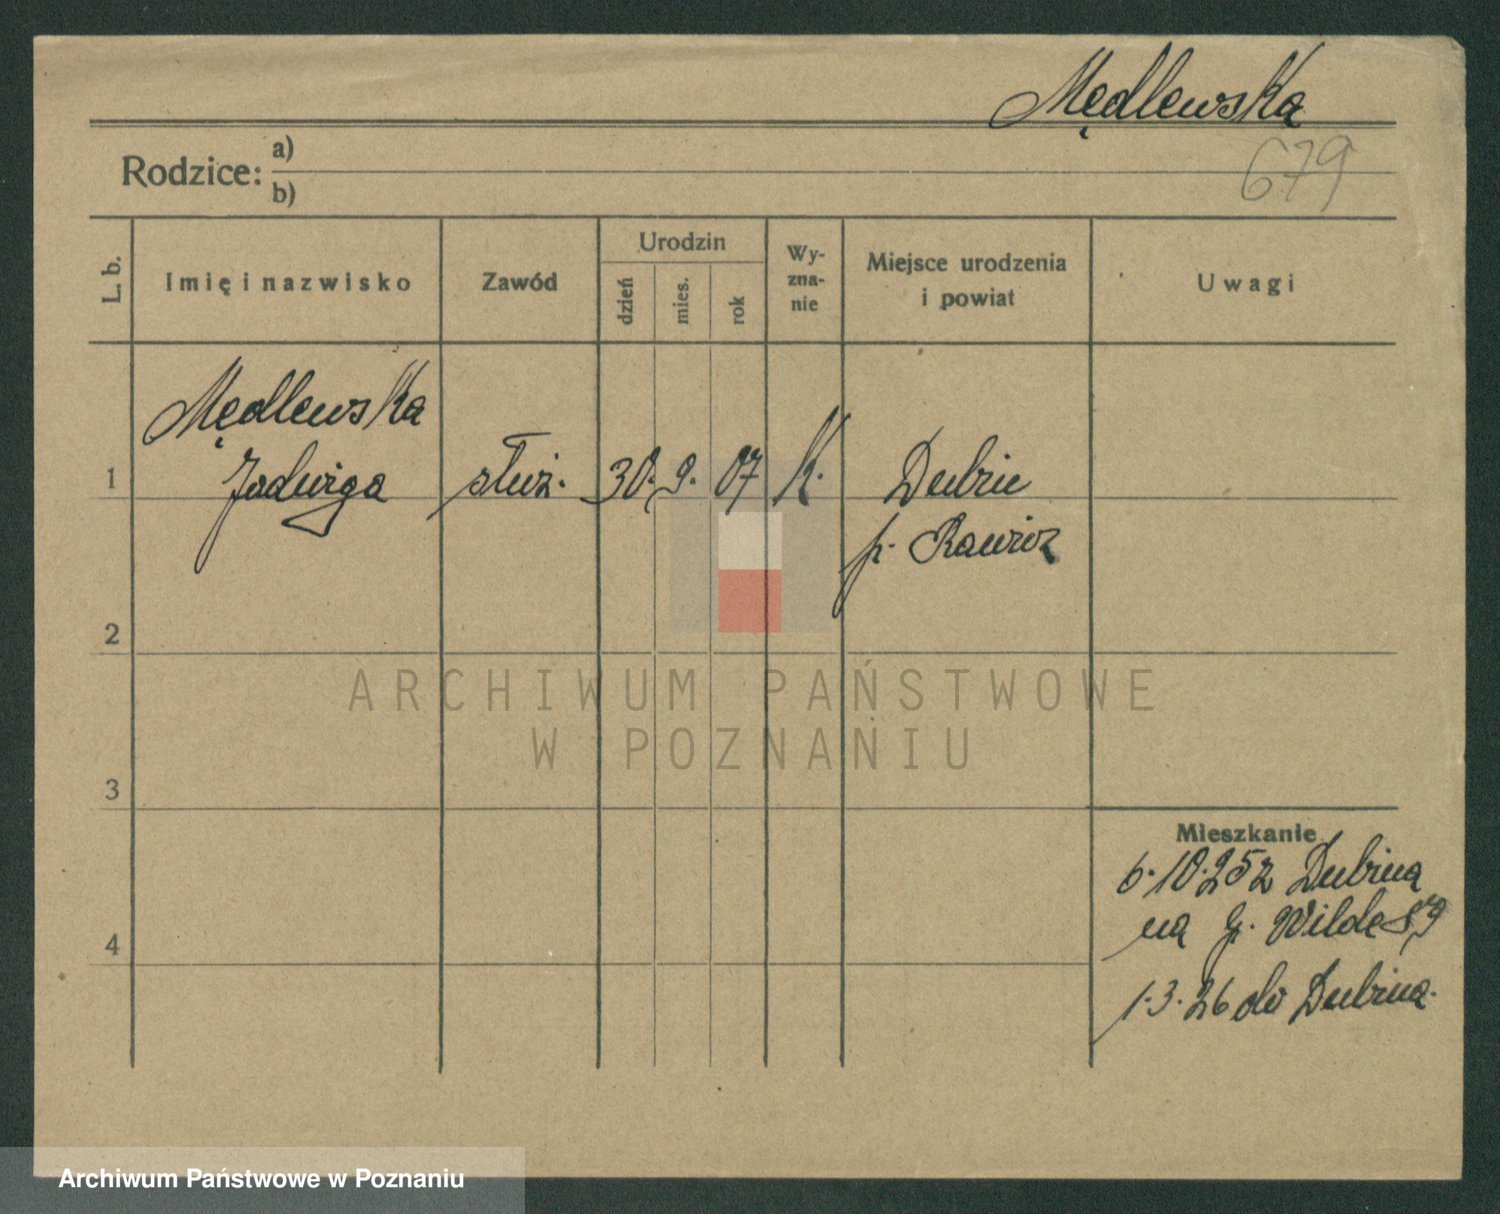 Mędlewska
Rodzice: a)
b)
679
L. b.
Imię i nazwisko
Zawód
Urodzin
dzień
mies.
rok
Wy-
zna-
nie
Miejsce urodzenia
i powiat
Uwagi
Mędlewska
1 Jadwiga służ. 30. 9. 07 K. Dubin
p. Rawicz
2
ARCHIWUM PAŃSTWOWE
W POZNANIU
3
Mieszkanie
6.10.25 z Dubina
4 na G. Wildę
1.3.26 do Dubina.
Archiwum Państwowe w Poznaniu